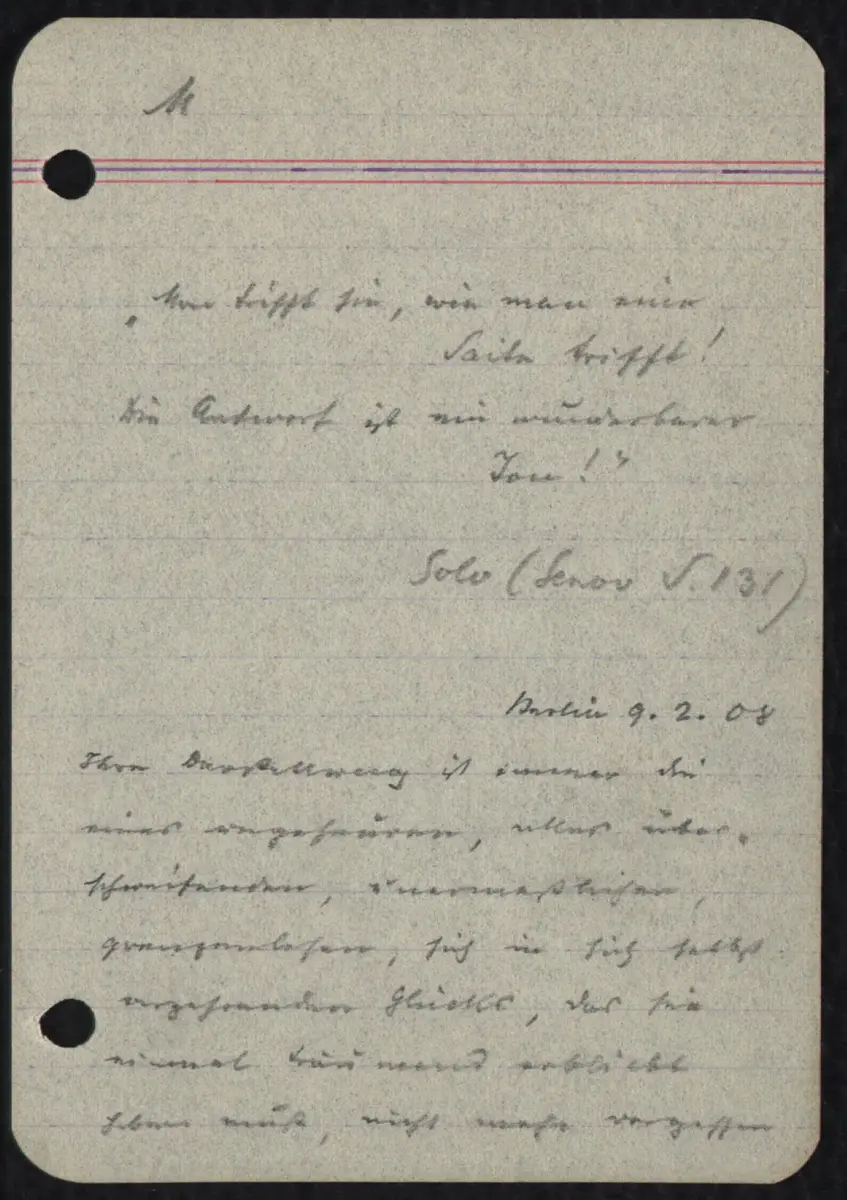 M
„Man trifft sie, wie man eine
Saite trifft!
Die Antwort ist ein wunderbarer
Ton!"
Solo ( S. 131)
Berlin 9. 2. 08
Ihre Darstellung ist immer die
eines ungeheuren, alles über-
schweifenden, unermeßlichen,
grenzenlosen, sich in sich selbst
verzehrenden Glücks, das sie
einmal träumend erblickt
haben muß, nicht mehr vergessen